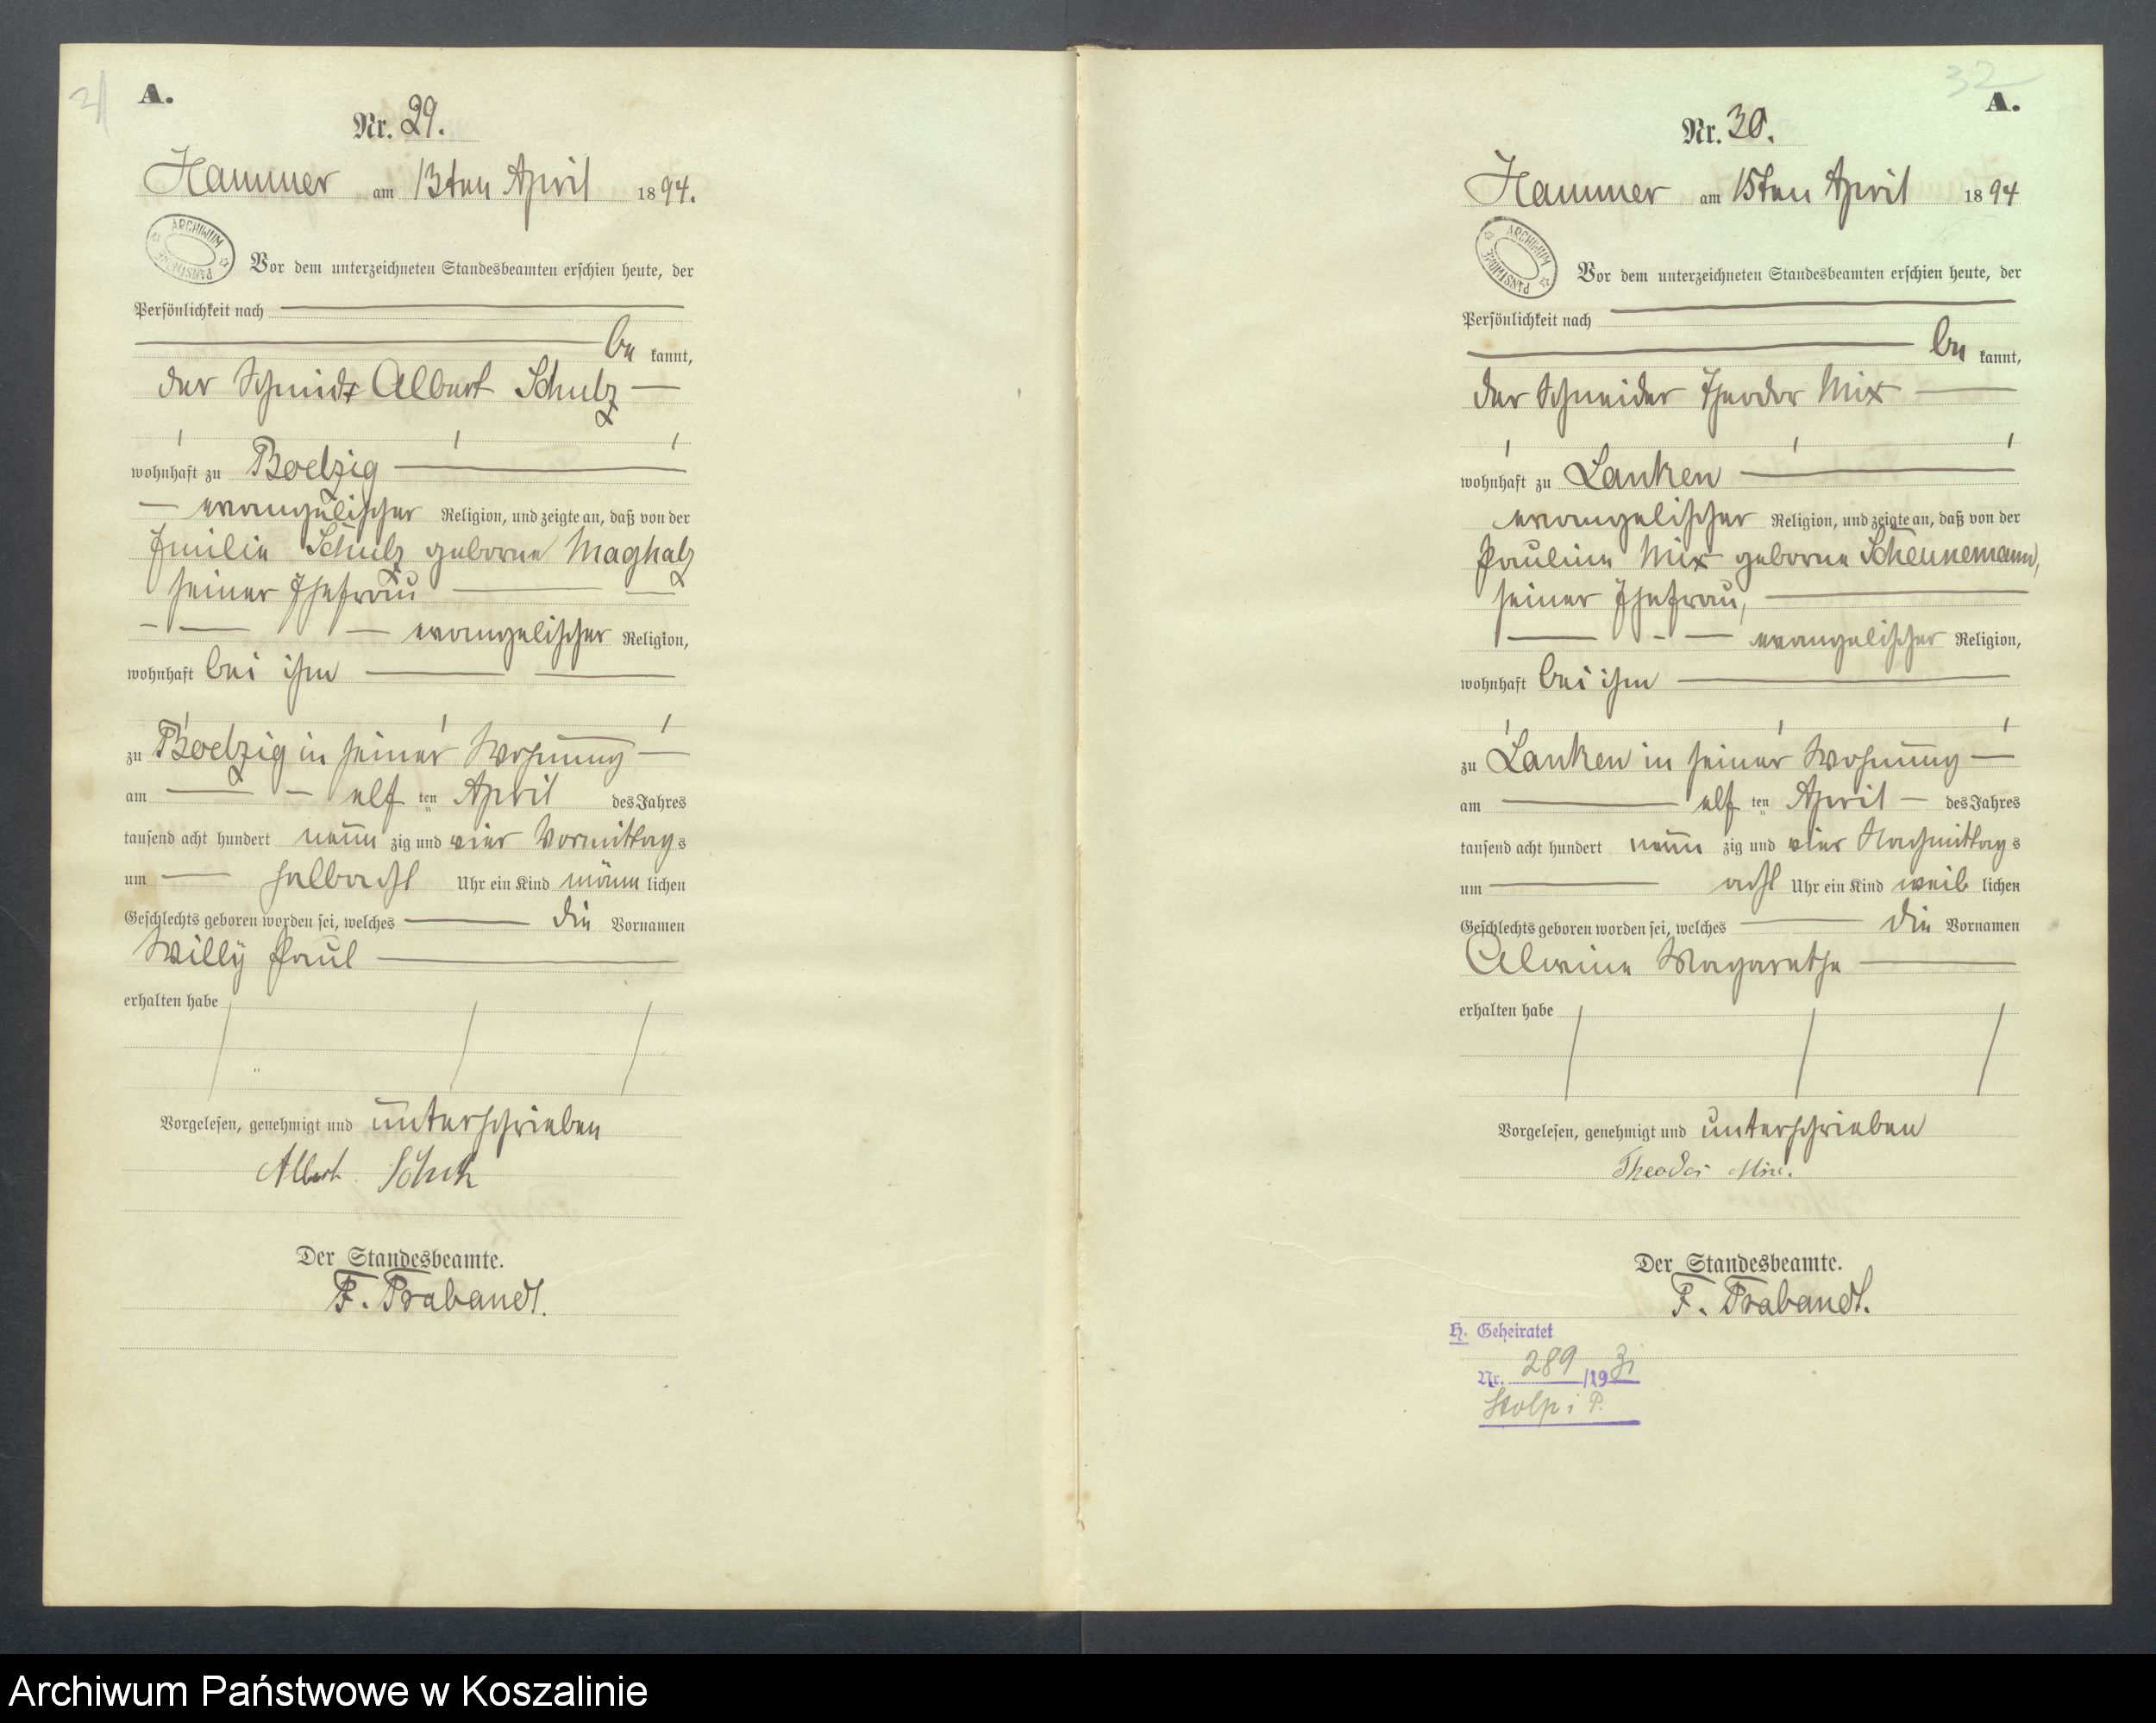 A.
Nr. 29.
Hammer am 13ten April 1894.
ARCHIWUM PAŃSTWOWE
Vor dem unterzeichneten Standesbeamten erschien heute, der
Persönlichkeit nach
be kannt,
der Schmidt Albert Schulz
wohnhaft zu Boelzig
evangelischer Religion, und zeigte an, daß von der
Emilie Schulz geborne Maghalz
seiner Ehefrau
evangelischer Religion,
wohnhaft bei ihm
zu Boelzig in seiner Wohnung
am elf ten April des Jahres
tausend acht hundert neun zig und vier Vormittag s
um halbacht Uhr ein Kind männ lichen
Geschlechts geboren worden sei, welches die Vornamen
Willy Paul
erhalten habe
Vorgelesen, genehmigt und unterschrieben
Albert Schulz
Der Standesbeamte.
F. Brabandt.
32
A.
Nr. 30.
Hammer am 15ten April 1894
ARCHIWUM PAŃSTWOWE
Vor dem unterzeichneten Standesbeamten erschien heute, der
Persönlichkeit nach
be kannt,
der Schneider Theodor Mix
wohnhaft zu Lanken
evangelischer Religion, und zeigte an, daß von der
Pauline Mix geborne Scheunemann,
seiner Ehefrau,
evangelischer Religion,
wohnhaft bei ihm
zu Lanken in seiner Wohnung
am elf ten April des Jahres
tausend acht hundert neun zig und vier Nachmittag s
um acht Uhr ein Kind weib lichen
Geschlechts geboren worden sei, welches die Vornamen
Alwine Magarethe
erhalten habe
Vorgelesen, genehmigt und unterschrieben
Theodor Mix.
Der Standesbeamte.
F. Brabandt.
H. Geheiratet
Nr. 289 /1931
Stolp i P.
Archiwum Państwowe w Koszalinie